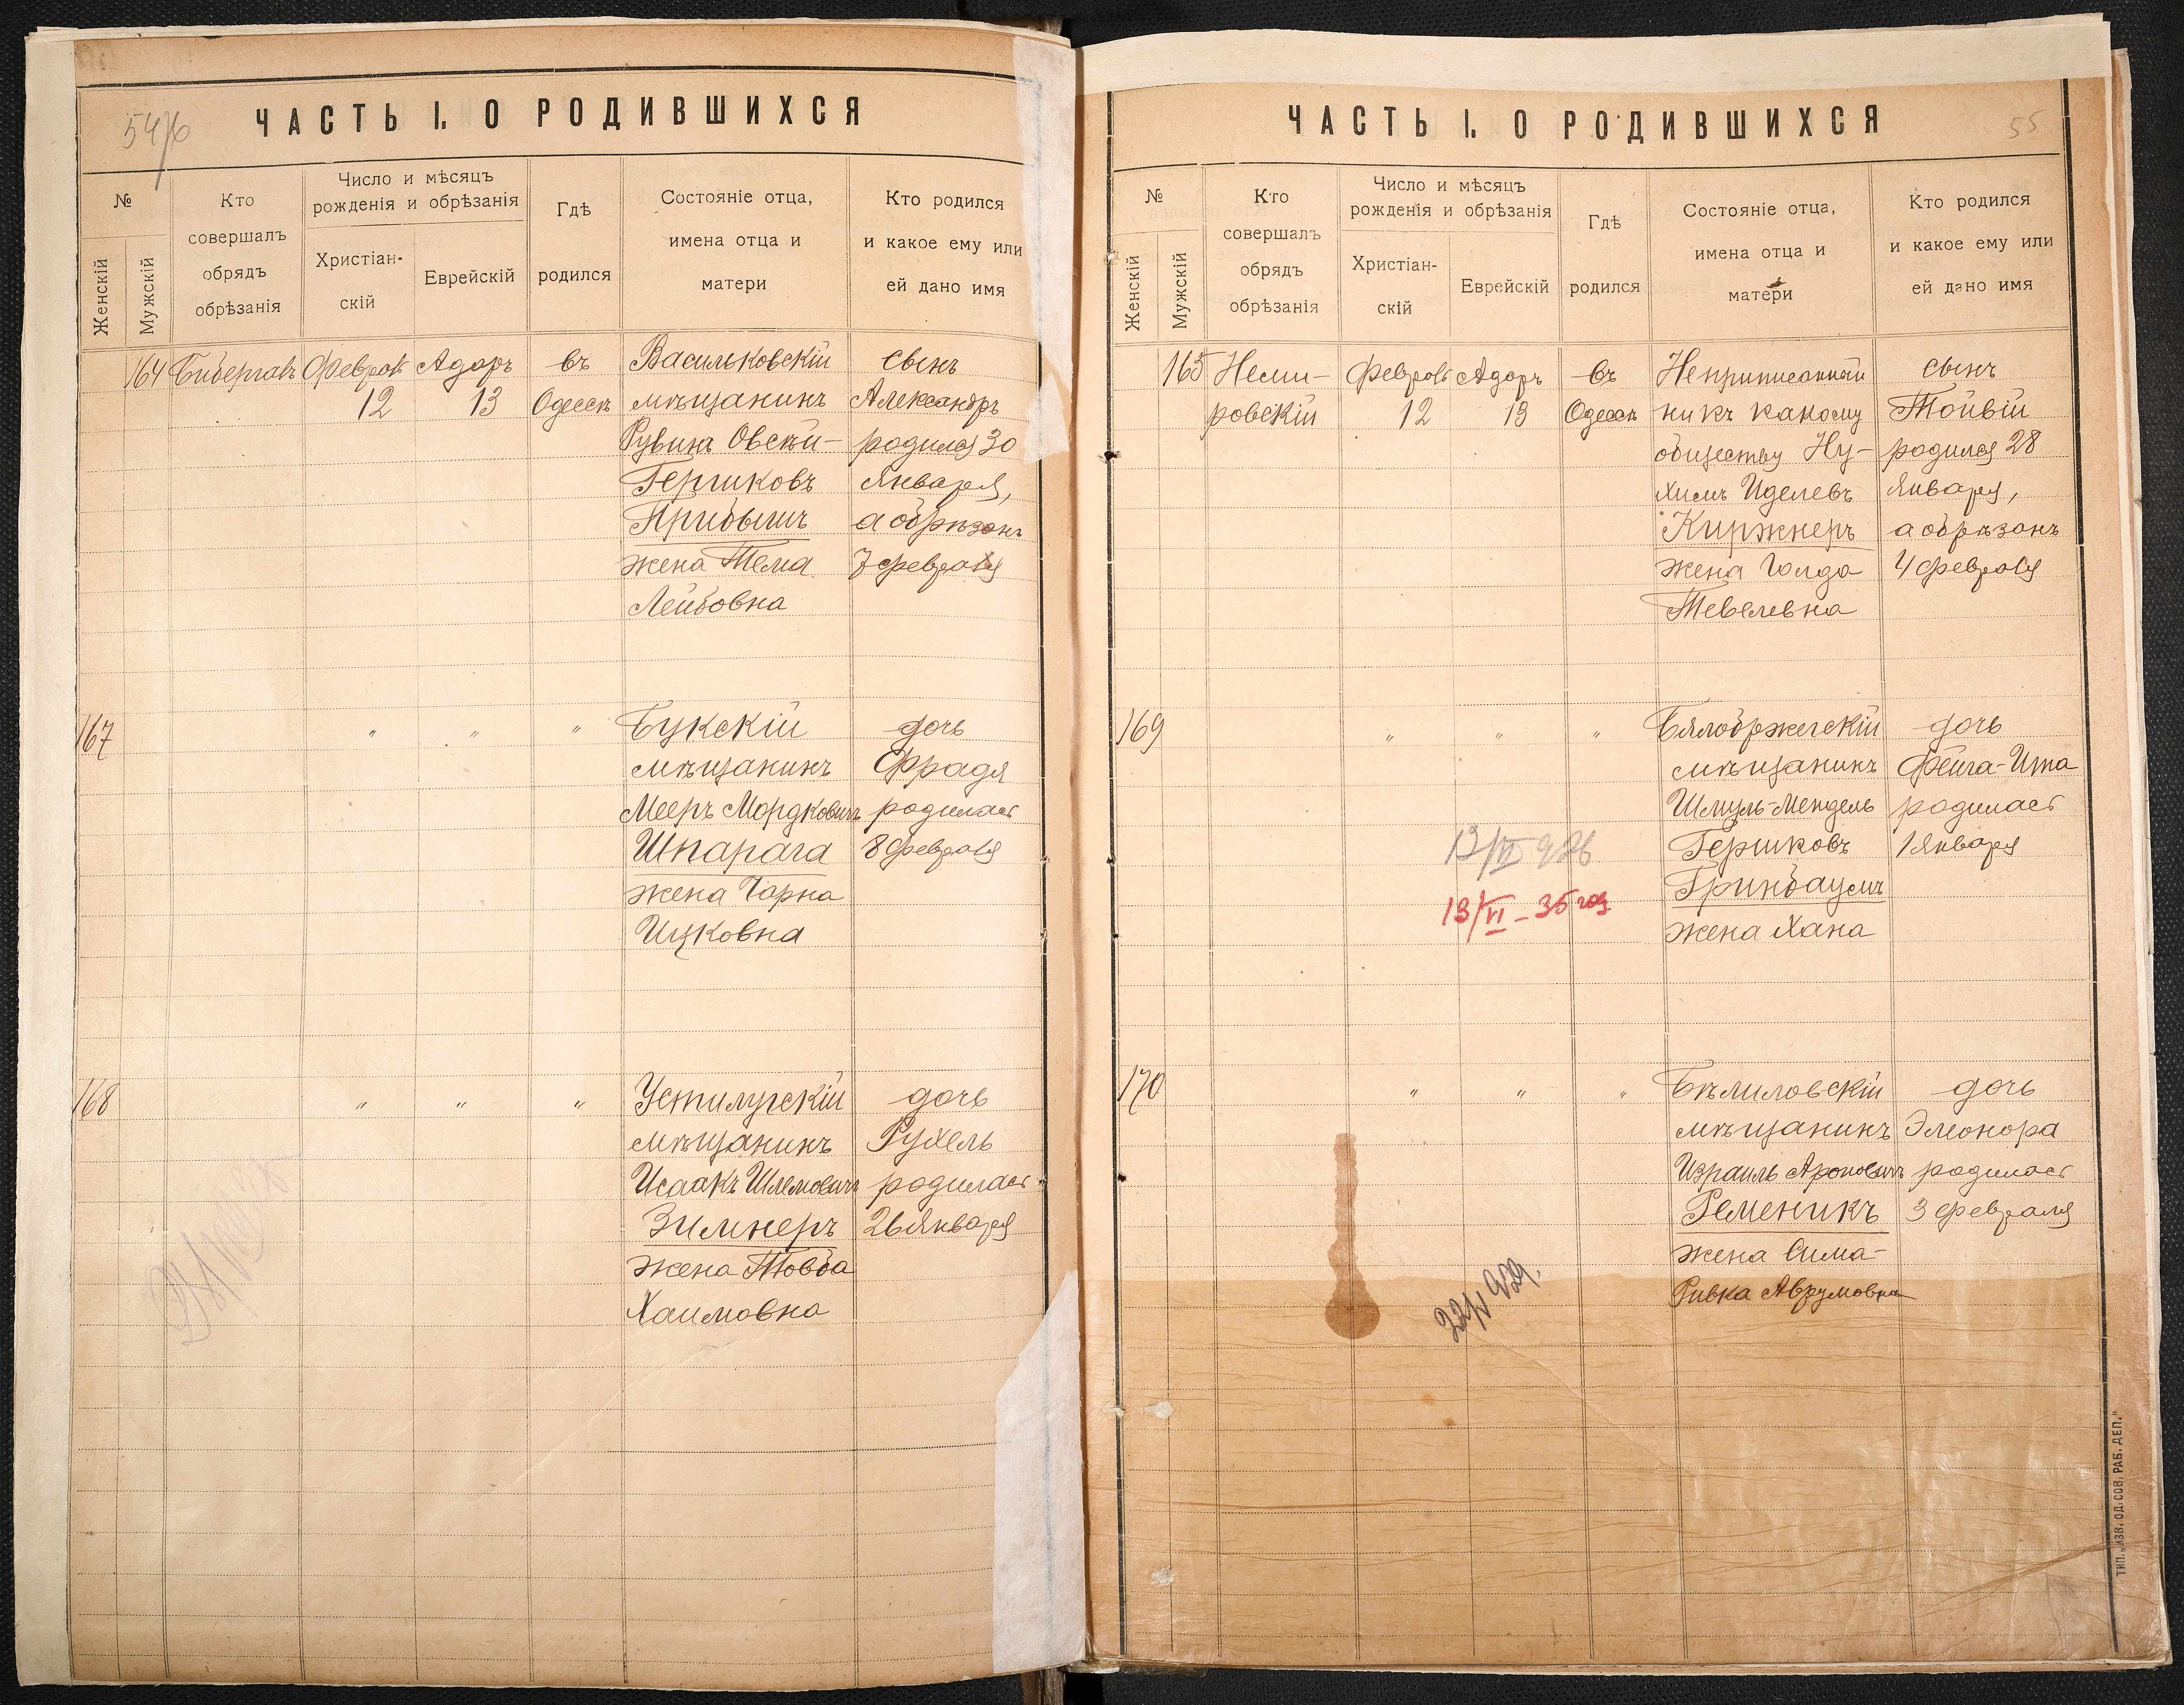 54
ЧАСТЬ I. О РОДИВШИХСЯ
№
Женскій
Мужскій
Кто
совершалъ
обрядъ
обрѣзанія
Число и мѣсяцъ
рожденія и обрѣзанія
Христіан-
скій
Еврейскій
Гдѣ
родился
Состояніе отца,
имена отца и
матери
Кто родился
и какое ему или
ей дано имя
164
Бибергалъ
Февраль
12
Адаръ
13
въ
Одессѣ
Васильковскій
мѣщанинъ
Рувинъ Овсѣй-
Гершковъ
Прибышъ
жена Тема
Лейбовна
сынъ
Александръ
родился 30
Января,
а обрѣзанъ
7 февраля
167
" " "
Букскій
мѣщанинъ
Мееръ Мордковичъ
Шпарага
жена Чарна
Ицковна
дочь
Фрадя
родилась
8 февраля
168
" " "
Устилугскій
мѣщанинъ
Исаакъ Шлемовичъ
Зимнеръ
жена Товба
Хаимовна
дочь
Рухель
родилась
26 Января
55
ЧАСТЬ I. О РОДИВШИХСЯ
№
Женскій
Мужскій
Кто
совершалъ
обрядъ
обрѣзанія
Число и мѣсяцъ
рожденія и обрѣзанія
Христіан-
скій
Еврейскій
Гдѣ
родился
Состояніе отца,
имена отца и
матери
Кто родился
и какое ему или
ей дано имя
165
Неми-
ровскій
Февраль
12
Адаръ
13
въ
Одессѣ
Неприписанный
ни къ какому
обществу Ну-
химъ Иделевъ
Киржнеръ
жена Голда
Тевелевна
сынъ
Тойвій
родился 28
Января,
а обрѣзанъ
4 февраля
169
" " "
Бялобржегскій
мѣщанинъ
Шмуль-Мендель
Гершковъ
Гринбаумъ
жена Хана
дочь
Фейга-Ита
родилась
1 Января
13/VI - 35 год
170
" " "
Бѣлиловскій
мѣщанинъ
Израиль Ароновичъ
Ременикъ
жена Сима-
Ривка Аврумовна
дочь
Элеонора
родилась
3 февраля
ТИП. „ИЗВ. ОД. СОВ. РАБ. ДЕП."